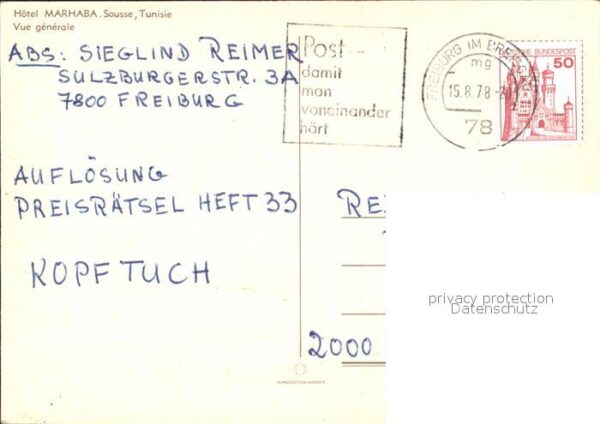 Hôtel MARHABA. Sousse, Tunisie
Vue générale
ABS: SIEGLIND REIMER
SULZBURGERSTR. 3A
7800 FREIBURG
Post –
damit
man
voneinander
hört
FREIBURG IM BREISGAU
mg
15.8.78
78
DEUTSCHE BUNDESPOST
50
AUFLÖSUNG
PREISRÄTSEL HEFT 33
KOPFTUCH
2000
privacy protection
Datenschutz